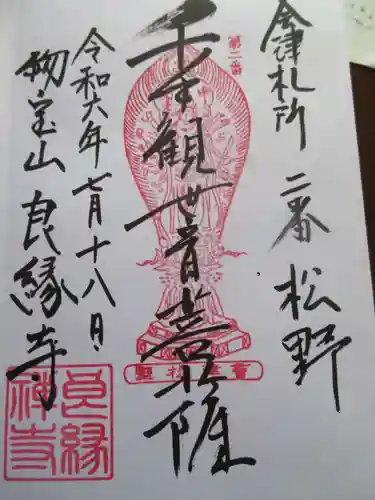 会津札所 二番 松野
第二番
千手観世音菩薩
令和六年七月十八日
物宝山 良縁寺
良縁禅寺